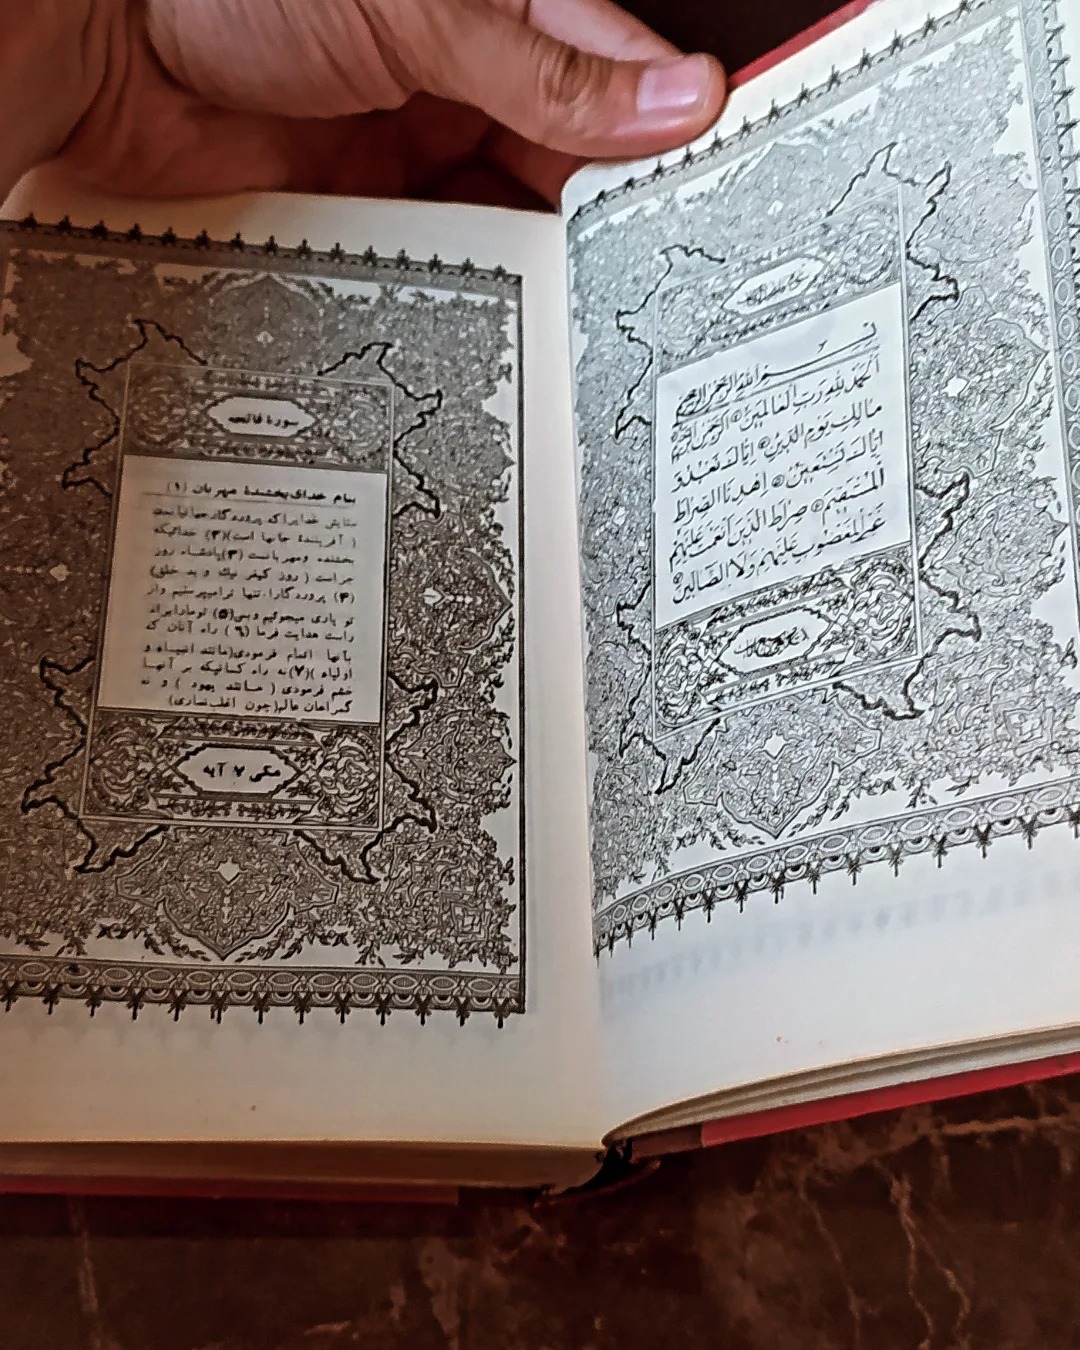 بِسْمِ اللهِ الرَّحْمٰنِ الرَّحِيمِ
اَلْحَمْدُ لِلّٰهِ رَبِّ الْعَالَمِينَ اَلرَّحْمٰنِ الرَّحِيمِ
مَالِكِ يَوْمِ الدِّينِ اِيَّاكَ نَعْبُدُ وَ
اِيَّاكَ نَسْتَعِينُ اِهْدِنَا الصِّرَاطَ
الْمُسْتَقِيمَ صِرَاطَ الَّذِينَ اَنْعَمْتَ عَلَيْهِمْ
غَيْرِ الْمَغْضُوبِ عَلَيْهِمْ وَلَا الضَّالِّينَ
سورهٔ فاتحه
بنام خدای بخشندهٔ مهربان (۱)
ستایش خدایرا که پروردگار جهانیانست
( آفرینندهٔ جانها است)(۲) خدائیکه
بخشنده ومهربانست (۳)پادشاه روز
جزاست ( روز کیفر نیك و بد خلق)
(۴) پروردگارا، تنها ترا میپرستیم واز
تو یاری میجوئیم وبس(۵) تو ما را براه
راست هدایت فرما (۶) راه آنان که
بآنها انعام فرمودی(مانند انبیاء و
اولیاء )(۷)نه راه کسانیکه بر آنها
خشم فرمودی ( مانند یهود ) و نه
گمراهان عالم(چون اغلب نصاری)
مکی ۷ آیه